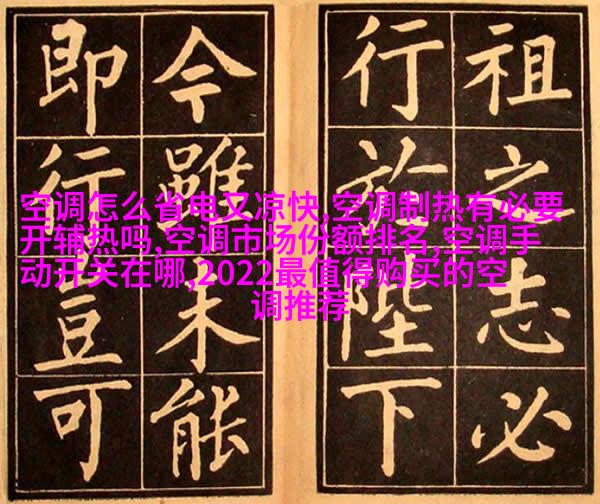 祖之志必
行於陛下
今雖未能
即行豈可
空调怎么省电又凉快,空调制热有必要
开辅热吗,空调市场份额排名,空调手
动开关在哪,2022最值得购买的空
调推荐